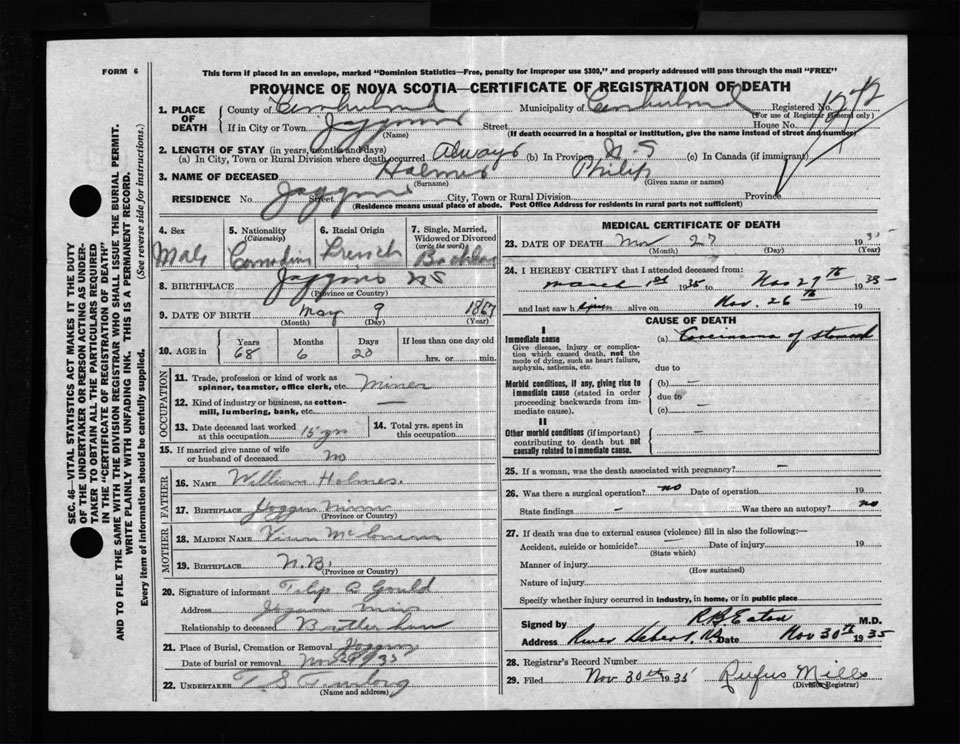 FORM 6
This form if placed in an envelope, marked "Dominion Statistics—Free, penalty for improper use $300," and properly addressed will pass through the mail "FREE"
PROVINCE OF NOVA SCOTIA—CERTIFICATE OF REGISTRATION OF DEATH
1. PLACE OF DEATH County of Cumberland Municipality of Cumberland Registered No.
(For use of Registrar General only)
If in City or Town Street House No.
(Name) (If death occurred in a hospital or institution, give the name instead of street and number)
2. LENGTH OF STAY (in years, months and days)
(a) In City, Town or Rural Division where death occurred Always (b) In Province N.S (c) In Canada (if immigrant)
3. NAME OF DECEASED Holmes Philip
(Surname) (Given name or names)
RESIDENCE No. Street City, Town or Rural Division Province
(Residence means usual place of abode. Post Office Address for residents in rural parts not sufficient)
4. Sex Male
5. Nationality (Citizenship) Canadian
6. Racial Origin French
7. Single, Married, Widowed or Divorced (write the word) Bachelor
8. BIRTHPLACE Joggins NS
(Province or Country)
9. DATE OF BIRTH May 9 1867
(Month) (Day) (Year)
10. AGE in Years 68 Months 6 Days 20 If less than one day old hrs. or min.
OCCUPATION
11. Trade, profession or kind of work as spinner, teamster, office clerk, etc. Miner
12. Kind of industry or business, as cotton-mill, lumbering, bank, etc. —
13. Date deceased last worked at this occupation 15 yrs
14. Total yrs. spent in this occupation
15. If married give name of wife or husband of deceased No
FATHER
16. NAME William Holmes.
17. BIRTHPLACE Joggin Mines
(Province or Country)
MOTHER
18. MAIDEN NAME
19. BIRTHPLACE N.B.
(Province or Country)
20. Signature of informant Gould
Address
Relationship to deceased
21. Place of Burial, Cremation or Removal Joggins
Date of burial or removal
22. UNDERTAKER T. S.
(Name and address)
MEDICAL CERTIFICATE OF DEATH
23. DATE OF DEATH Nov 27 1935
(Month) (Day) (Year)
24. I HEREBY CERTIFY that I attended deceased from:
March 1st 1935 to Nov 27th 1935
and last saw h alive on Nov. 26th 19
CAUSE OF DEATH
I
Immediate cause
Give disease, injury or complication which caused death, not the mode of dying, such as heart failure, asphyxia, asthenia, etc.
(a) Carcinoma of stomach
due to
Morbid conditions, if any, giving rise to immediate cause (stated in order proceeding backwards from immediate cause).
(b) —
due to
(c) —
II
Other morbid conditions (if important) contributing to death but not causally related to immediate cause. —
25. If a woman, was the death associated with pregnancy? —
26. Was there a surgical operation? no Date of operation 19
State findings – Was there an autopsy? no
27. If death was due to external causes (violence) fill in also the following:—
Accident, suicide or homicide? Date of injury 19
(State which)
Manner of injury
(How sustained)
Nature of injury
Specify whether injury occurred in industry, in home, or in public place
Signed by R B Eaton M.D.
Address River Hebert, NS Date Nov 30th 1935
28. Registrar's Record Number
29. Filed Nov 30th 1935 Rufus Mills
(Division Registrar)
SEC. 46—VITAL STATISTICS ACT MAKES IT THE DUTY
OF THE UNDERTAKER OR PERSON ACTING AS UNDER-
TAKER TO OBTAIN ALL THE PARTICULARS REQUIRED
IN THE "CERTIFICATE OF REGISTRATION OF DEATH"
AND TO FILE THE SAME WITH THE DIVISION REGISTRAR WHO SHALL ISSUE THE BURIAL PERMIT.
WRITE PLAINLY WITH UNFADING INK. THIS IS A PERMANENT RECORD.
Every item of information should be carefully supplied. (See reverse side for instructions.)